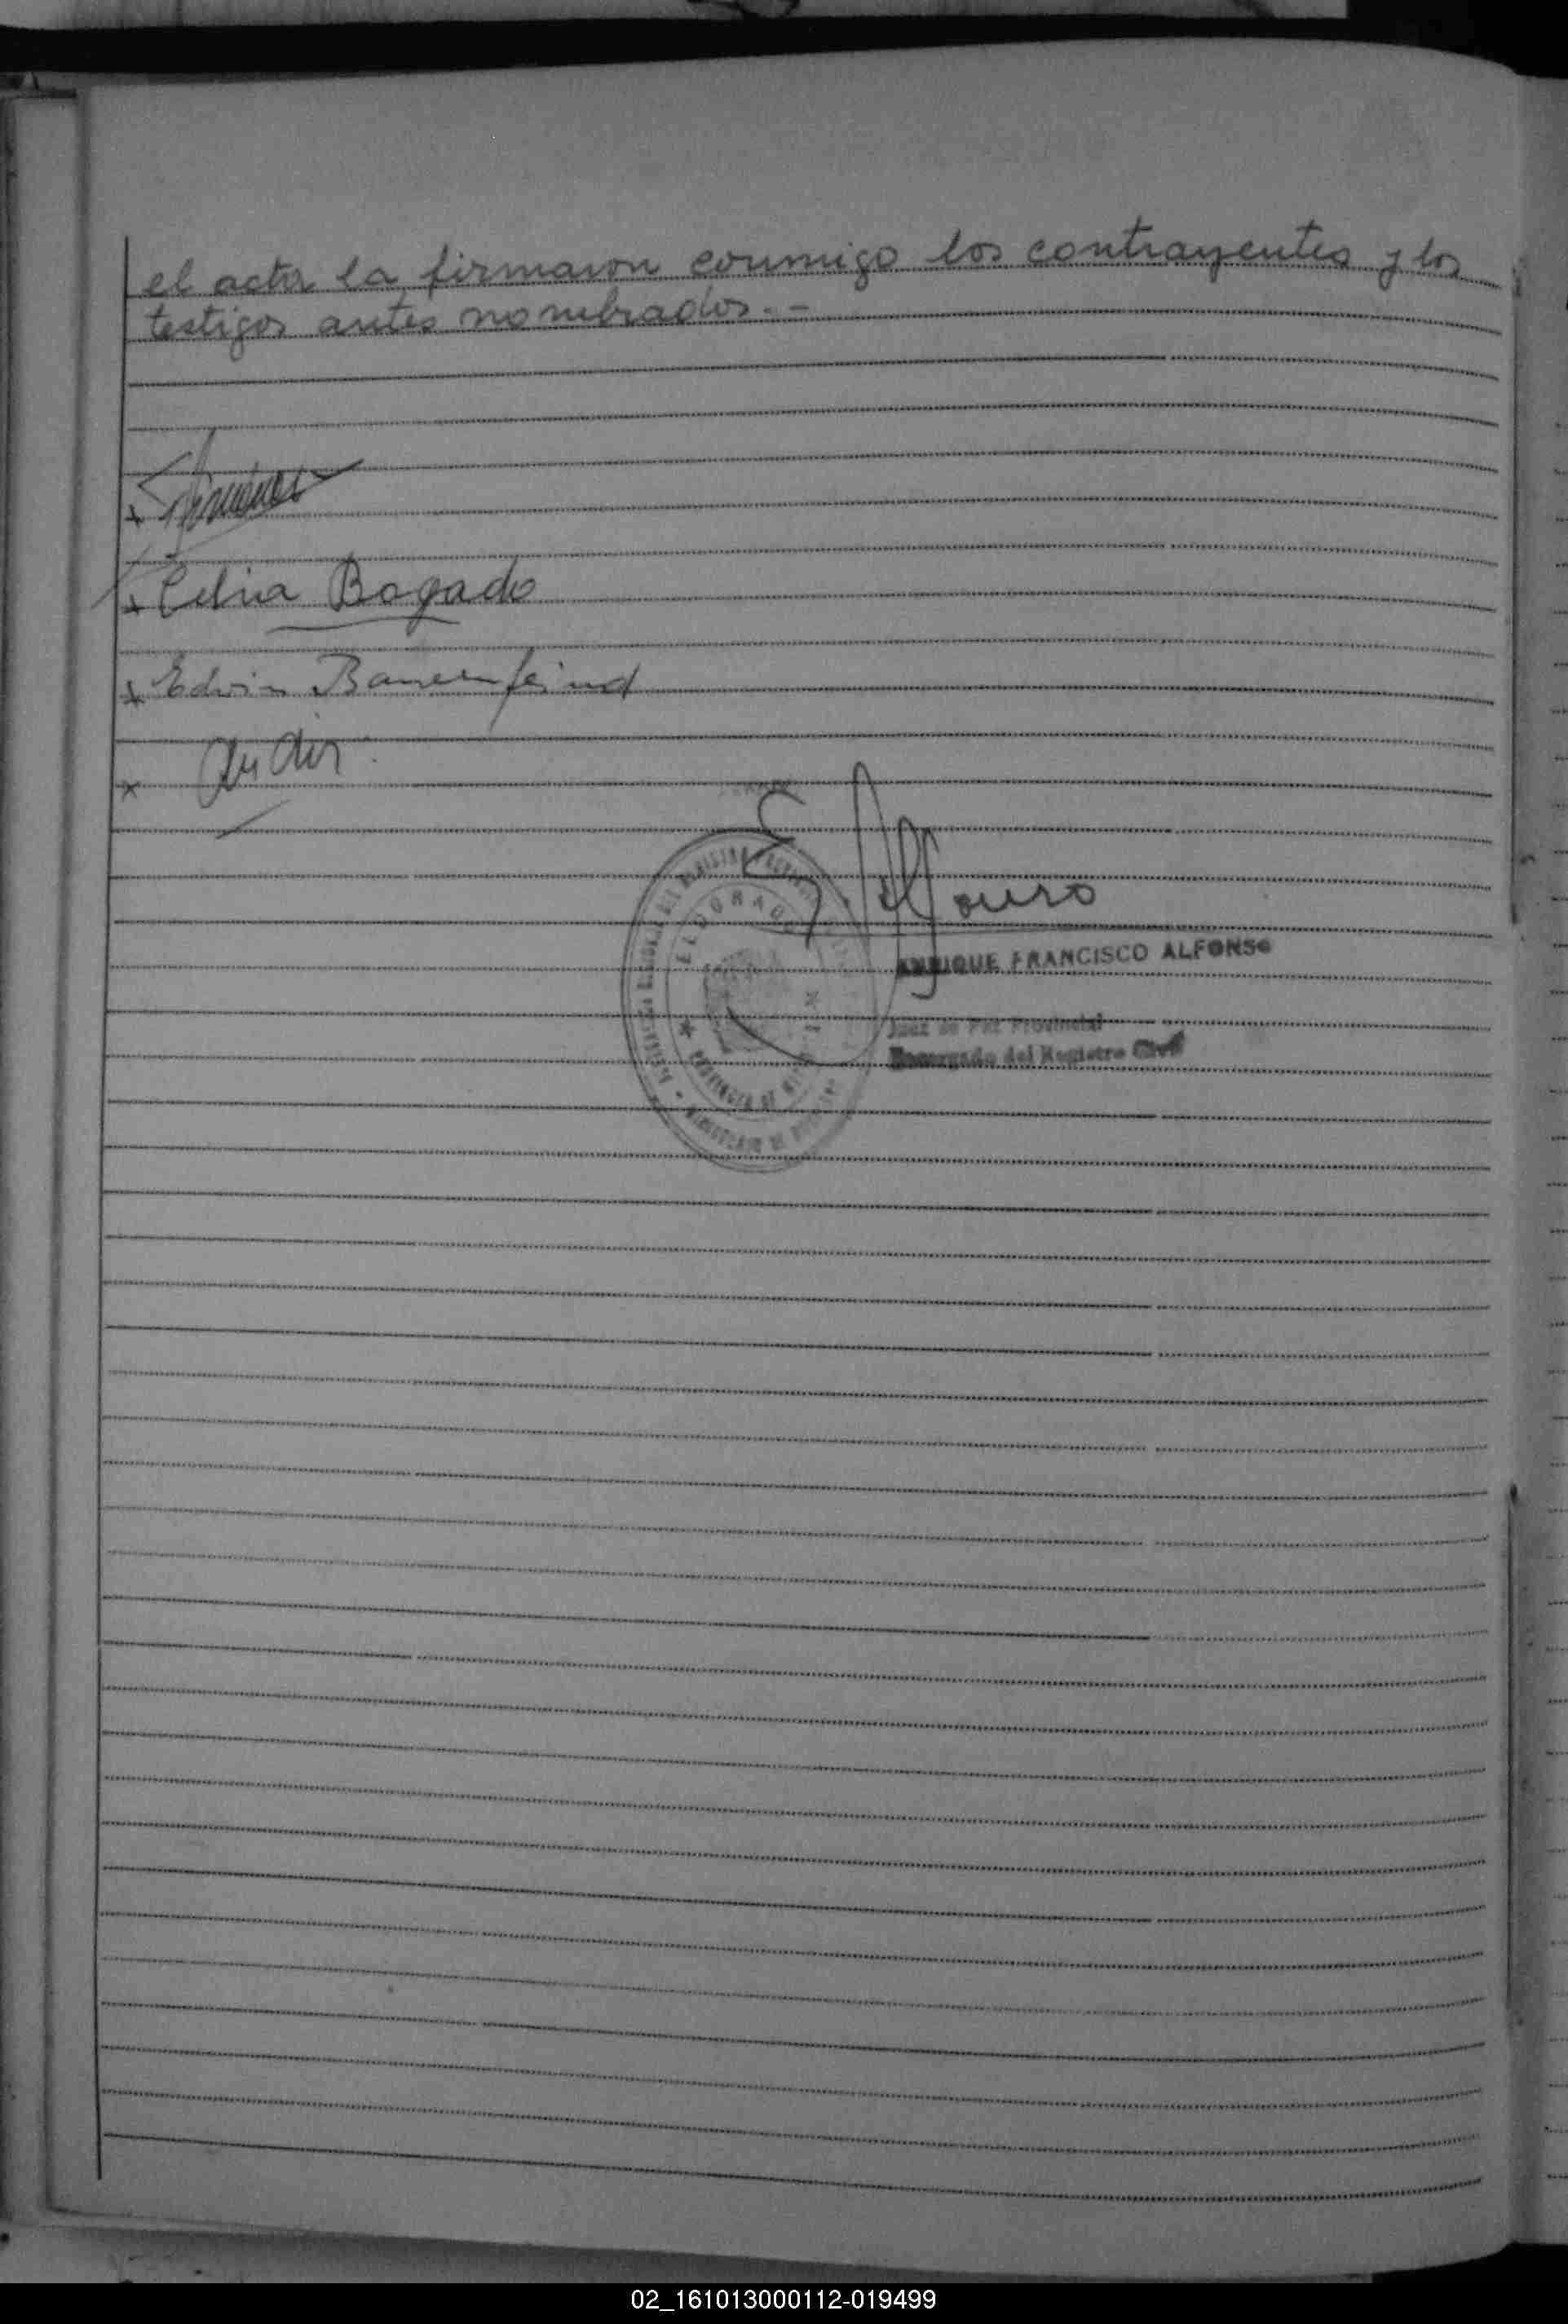 el acta la firmaron conmigo los contrayentes y los
testigos antes nombrados. -
x
x Celia Bogado
x Edwin Bauernfeind
x
E. Alfonso
ENRIQUE FRANCISCO ALFONSO
Juez de Paz Provincial
Encargado del Registro Civil
ELDORADO
PROVINCIA DE
02_161013000112-019499